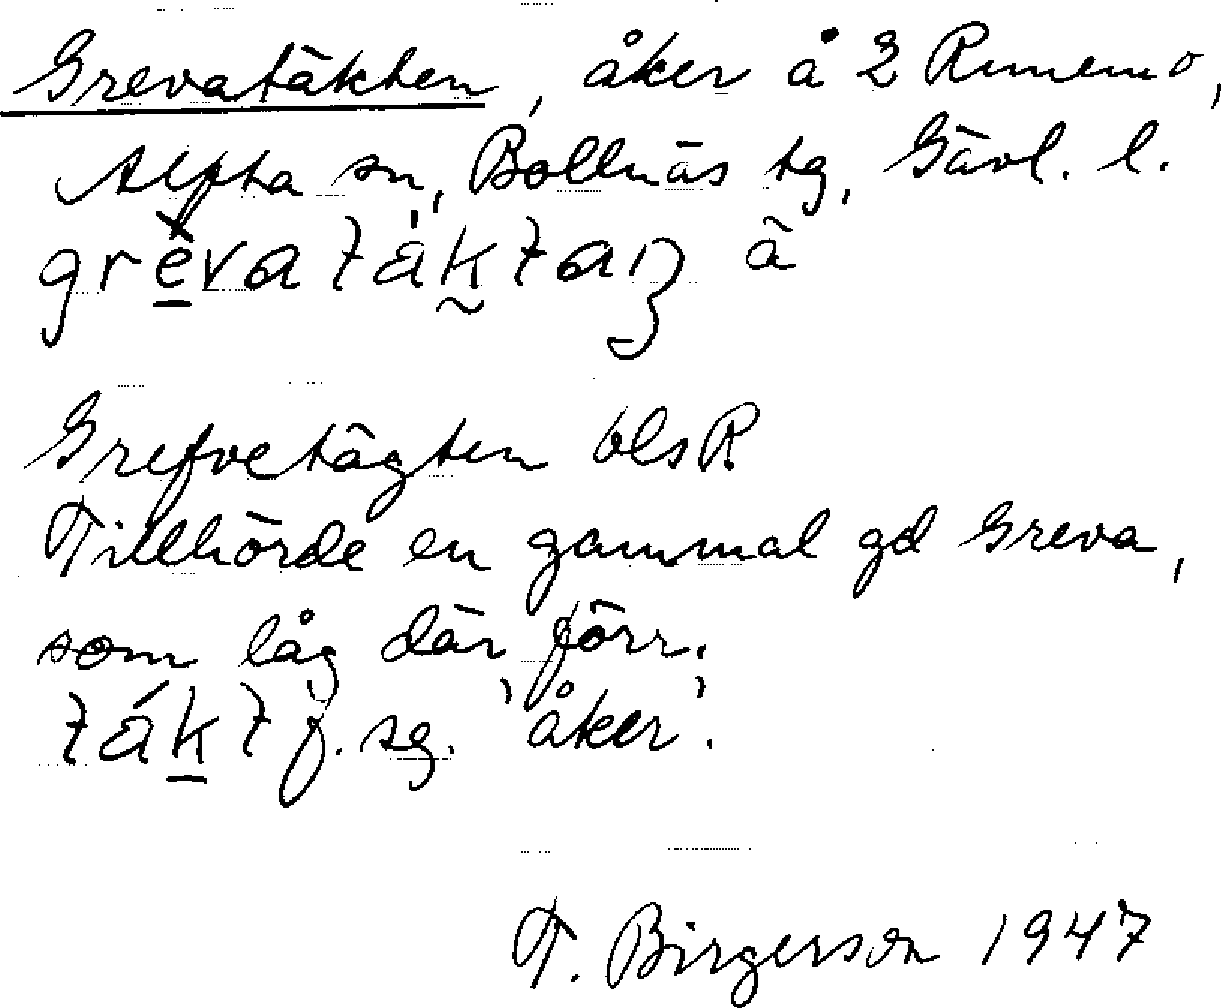 Grevatäkten, åker å 2 Runemo,
Alfta sn, Bollnäs tg, Gävl. l.
grèvatáktaŋ ā
Grefvetägten blsR
Tillhörde en gammal gd Greva,
som låg där förr.
tákt f. sg. 'åker'.
T. Birgerson 1947